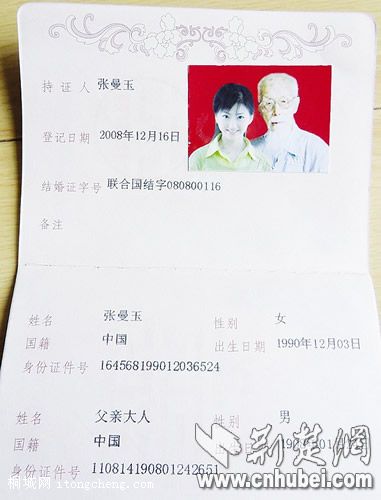 持证人 张曼玉
登记日期 2008年12月16日
结婚证字号 联合国结字080800116
备注
姓名 张曼玉 性别 女
国籍 中国 出生日期 1990年12月03日
身份证件号 164568199012036524
姓名 父亲大人 性别 男
国籍 中国 出生日期
身份证件号 110814190801242651
荆楚网
www.cnhubei.com
桐城网 itongcheng.com